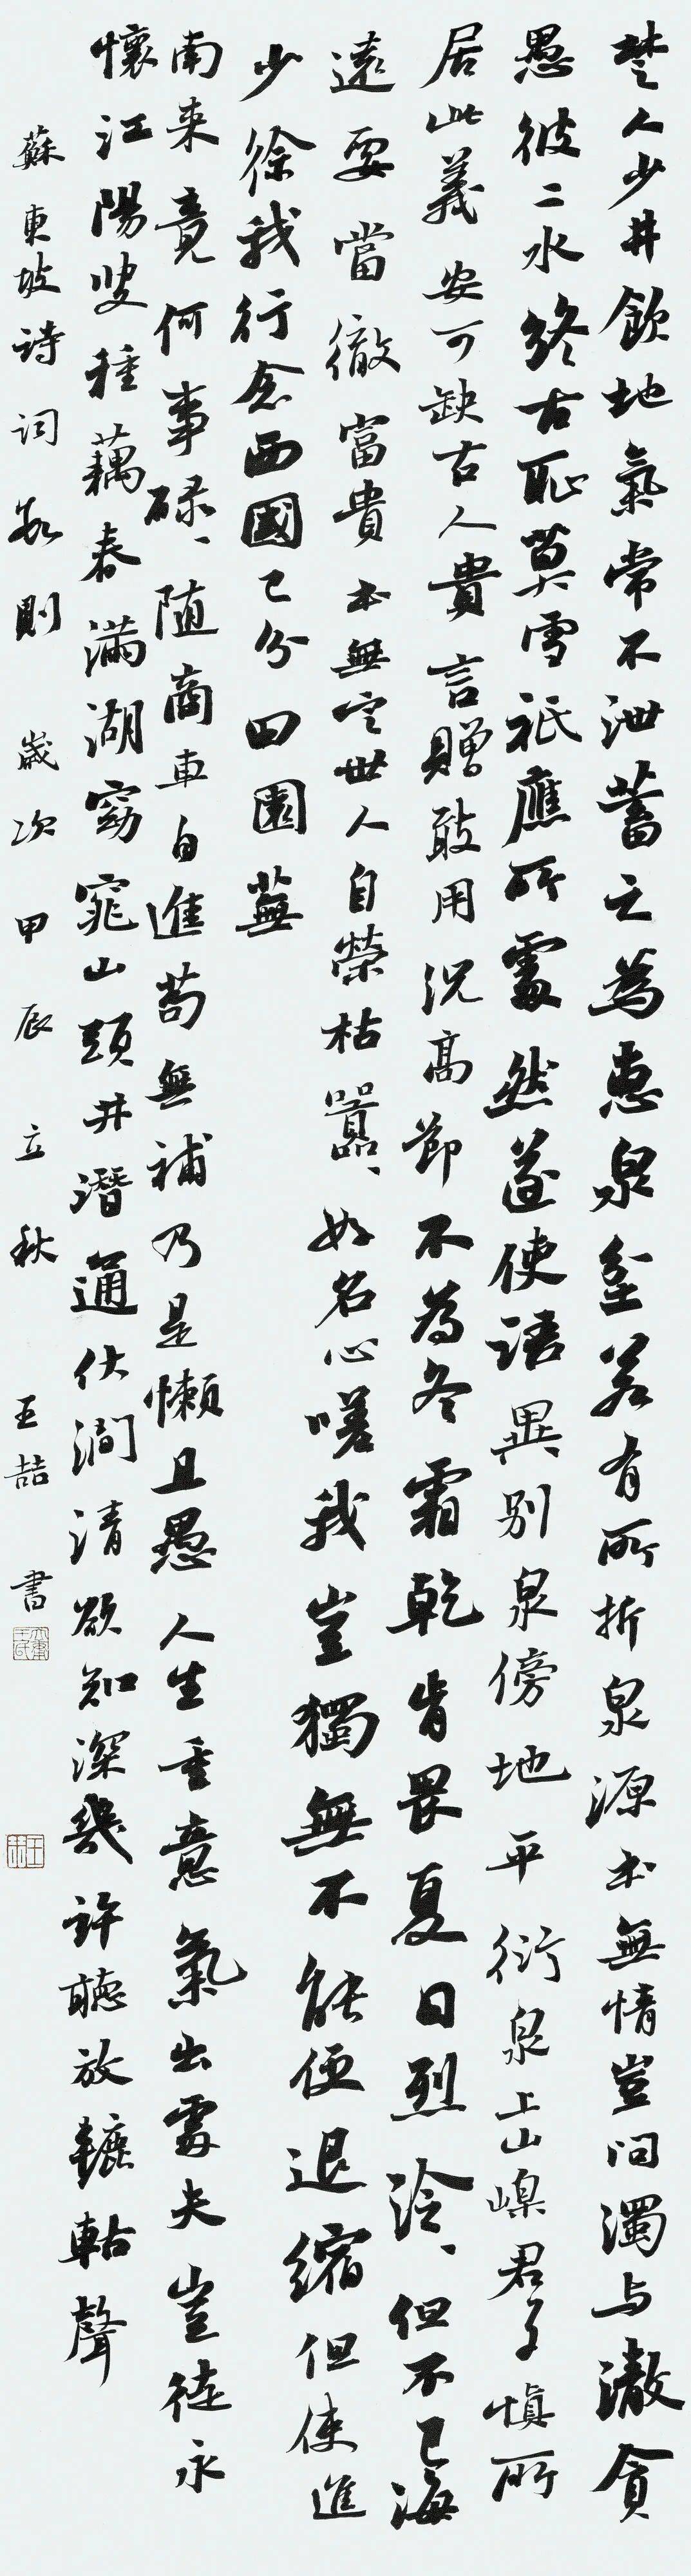 楚人少井飲地氣常不泄蓄之為惠泉坌若有所折泉源本無情豈問濁与澈貪
愚彼二水終古恥莫雪祇應所處然遂使語異別泉傍地平衍泉上山嵲君子慎所
居此義安可缺古人貴言贈敢用況高節不為冬霜乾肯畏夏日烈泠、但不已海
遠要當徹富貴本無定世人自榮枯囂、好名心嗟我豈獨無不能便退縮但使進
少徐我行念西國已分田園蕪
南来竟何事碌、随商車自進苟無補乃是懶且愚人生重意氣出處夫豈徒永
懷江陽叟種藕春滿湖窈窕山頭井潛通伏澗清欲知深幾許聽放轆軲聲
蘇東坡詩詞數則 歲次甲辰立秋 王喆書